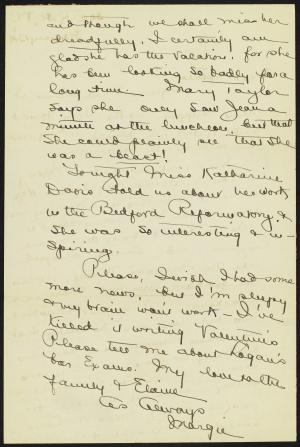 and though we shall miss her
dreadfully, I certainly am
glad she has the vacation, for she
has been looking so badly for a
long time. Mary Taylor
says she only saw Jean a
minute at the luncheon, but that
she could plainly see that she
was a beast!
Tonight Miss Katharine
Davis told us about her work
in the Bedford Reformatory, &
she was so interesting & in-
spiring.
Please, I wish I had some
more news, but I'm sleepy
& my brain won't work - I've
killed it writing Valentines
Please tell me about Logan's
bar Exams. My love to the
family & Elaine
As always
Margie